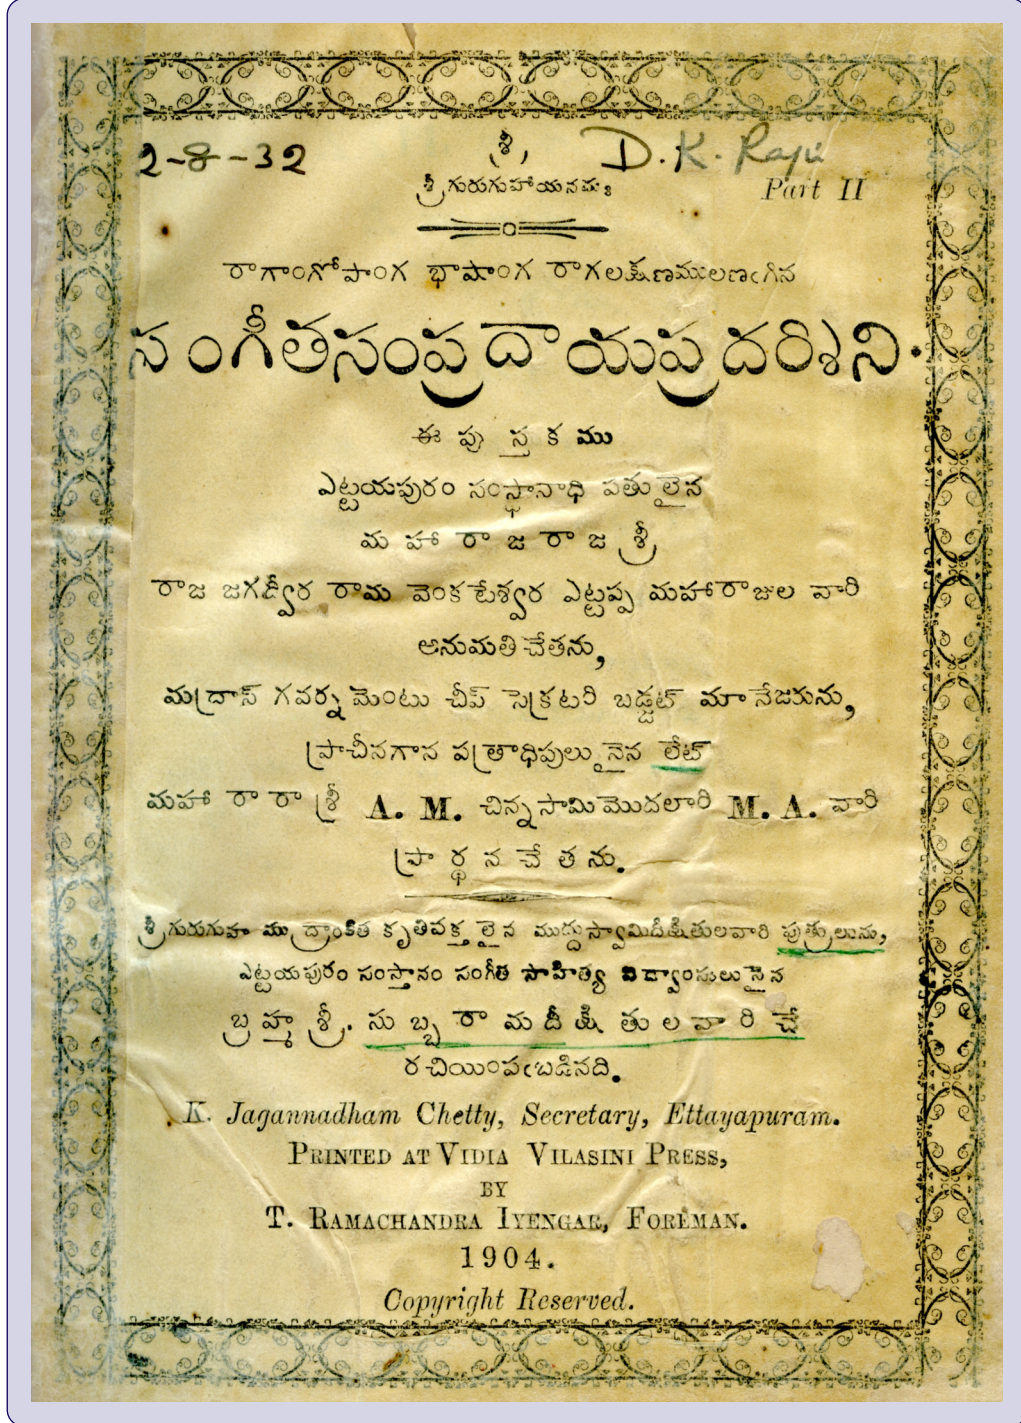 2-8-32
శ్రీ
D. K. Raju
శ్రీగురుగుహాయనమః
Part II
రాగాంగోపాంగ భాషాంగ రాగలక్షణములణఁగిన
సంగీతసంప్రదాయప్రదర్శిని.
ఈ పుస్తకము
ఎట్టయపురం సంస్థానాధి పతులైన
మహారాజరాజశ్రీ
రాజ జగద్వీర రామ వెంకటేశ్వర ఎట్టప్ప మహారాజుల వారి
అనుమతిచేతను,
మద్రాస్ గవర్న మెంటు చీప్ సెక్రటరి బడ్జట్ మానేజరును,
ప్రాచీనగాన పత్రాధిపులునైన లేట్
మహా రా రా శ్రీ A. M. చిన్నసామిమొదలారి M. A. వారి
ప్రార్థనచేతను.
శ్రీగురుగుహ ముద్రాంకిత కృతివక్తలైన ముద్దుస్వామిదీక్షితులవారి పుత్రులును,
ఎట్టయపురం సంస్తానం సంగీత సాహిత్య విద్వాంసులునైన
బ్రహ్మశ్రీ. సుబ్బరామదీక్షితులవారిచే
రచియింపఁబడినది.
K. Jagannadham Chetty, Secretary, Ettayapuram.
PRINTED AT VIDIA VILASINI PRESS,
BY
T. RAMACHANDRA IYENGAR, FOREMAN.
1904.
Copyright Reserved.